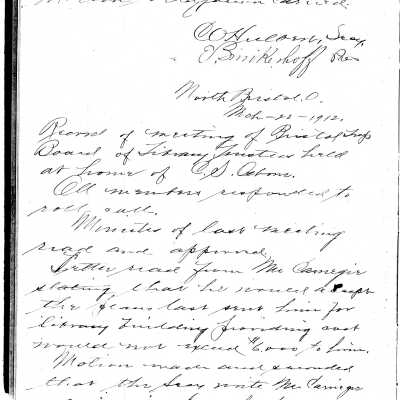 C O Hulbert, Secy,
J. Brinkerhoff Pres
North Bristol, O.
Mch-22-1912.
Record of meeting of Bristol Twp
Board of Library Trustees held
at home of C. S. Osborn.
All members responded to
roll call.
Minutes of last meeting
read and approved.
Letter read from Mr Carnegie
stating that he would accept
the plans last sent him for
library building providing cost
would not exceed $6000 to him.
Motion made and seconded
that the Secy write Mr Carnegie